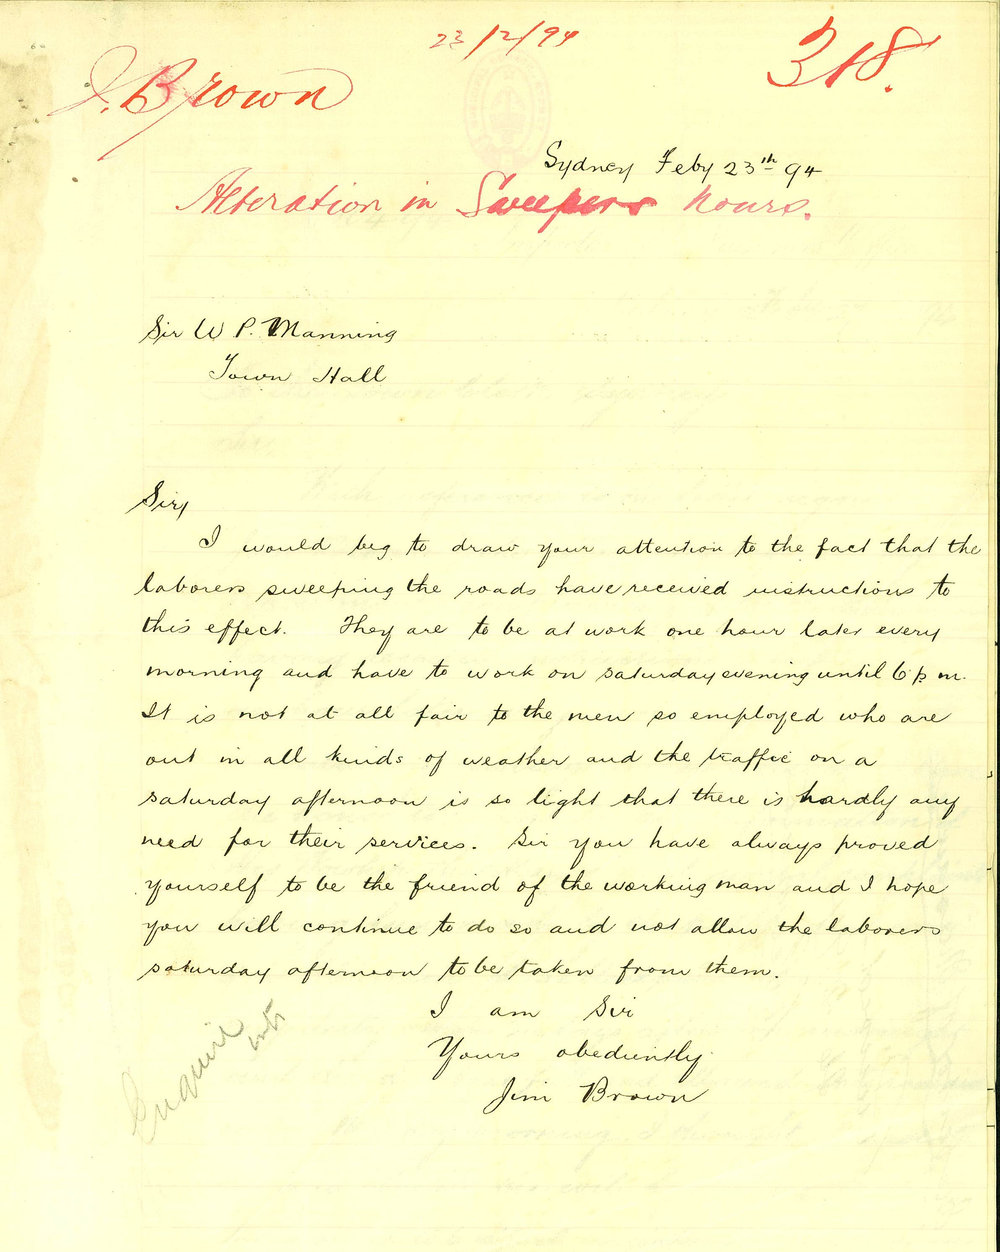 23/2/94
318.
J. Brown
Sydney Feby 23th 94
Alteration in Sweepers hours.
Sir W P. Manning
Town Hall
Sir,
I would beg to draw your attention to the fact that the
laborers sweeping the roads have received instructions to
this effect. They are to be at work one hour later every
morning and have to work on saturday evening until 6 p.m.
It is not at all fair to the men so employed who are
out in all kinds of weather and the traffic on a
saturday afternoon is so light that there is hardly any
need for their services. Sir you have always proved
yourself to be the friend of the working man and I hope
you will continue to do so and not allow the laborers
saturday afternoon to be taken from them.
I am Sir
Yours obediently
Jim Brown
Enquire